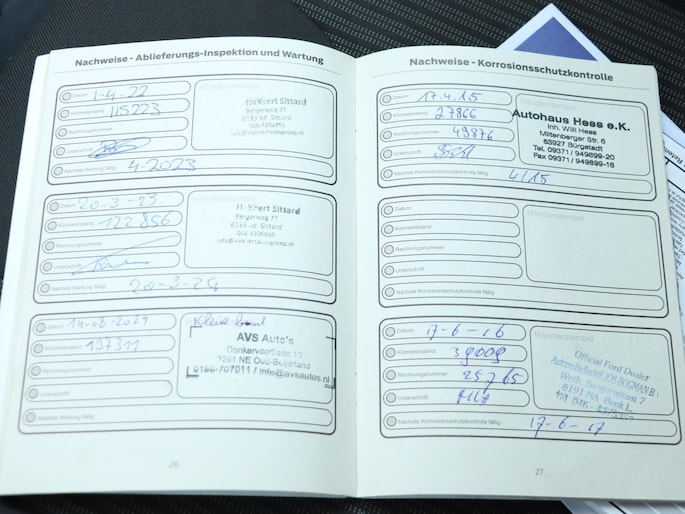 Nachweise - Ablieferungs-Inspektion und Wartung
Datum: 1-4-22
Kilometerstand: 115223
Rechnungsnummer:
Unterschrift:
Nächste Wartung fällig: 4-2023
Händlerstempel
Sittard
Bergerweg 77
Sittard
Datum: 20-3-23
Kilometerstand: 122856
Rechnungsnummer:
Unterschrift:
Nächste Wartung fällig: 20-3-24
Händlerstempel
Sittard
Bergerweg 77
Sittard
Datum: 14-08-2024
Kilometerstand: 137311
Rechnungsnummer:
Unterschrift:
Nächste Wartung fällig:
Kleine beurt
AVS Auto's
Donkervoortlaan 13
3261 NE Oud-Beijerland
0186-707011 / info@avsautos.nl
26
Nachweise - Korrosionsschutzkontrolle
Datum: 17.4.15
Kilometerstand: 27866
Rechnungsnummer: 49876
Unterschrift:
Nächste Korrosionsschutzkontrolle fällig: 4/15
Händlerstempel
Autohaus Hess e.K.
Inh. Willi Hess
Miltenberger Str. 6
63927 Bürgstadt
Tel. 09371 / 949899-20
Fax 09371 / 949899-16
Datum:
Kilometerstand:
Rechnungsnummer:
Unterschrift:
Nächste Korrosionsschutzkontrolle fällig:
Händlerstempel
Datum: 17-6-16
Kilometerstand: 39009
Rechnungsnummer: 25765
Unterschrift:
Nächste Korrosionsschutzkontrolle fällig: 17-6-17
Händlerstempel
Official Ford Dealer
6191 NA Beek L.
27